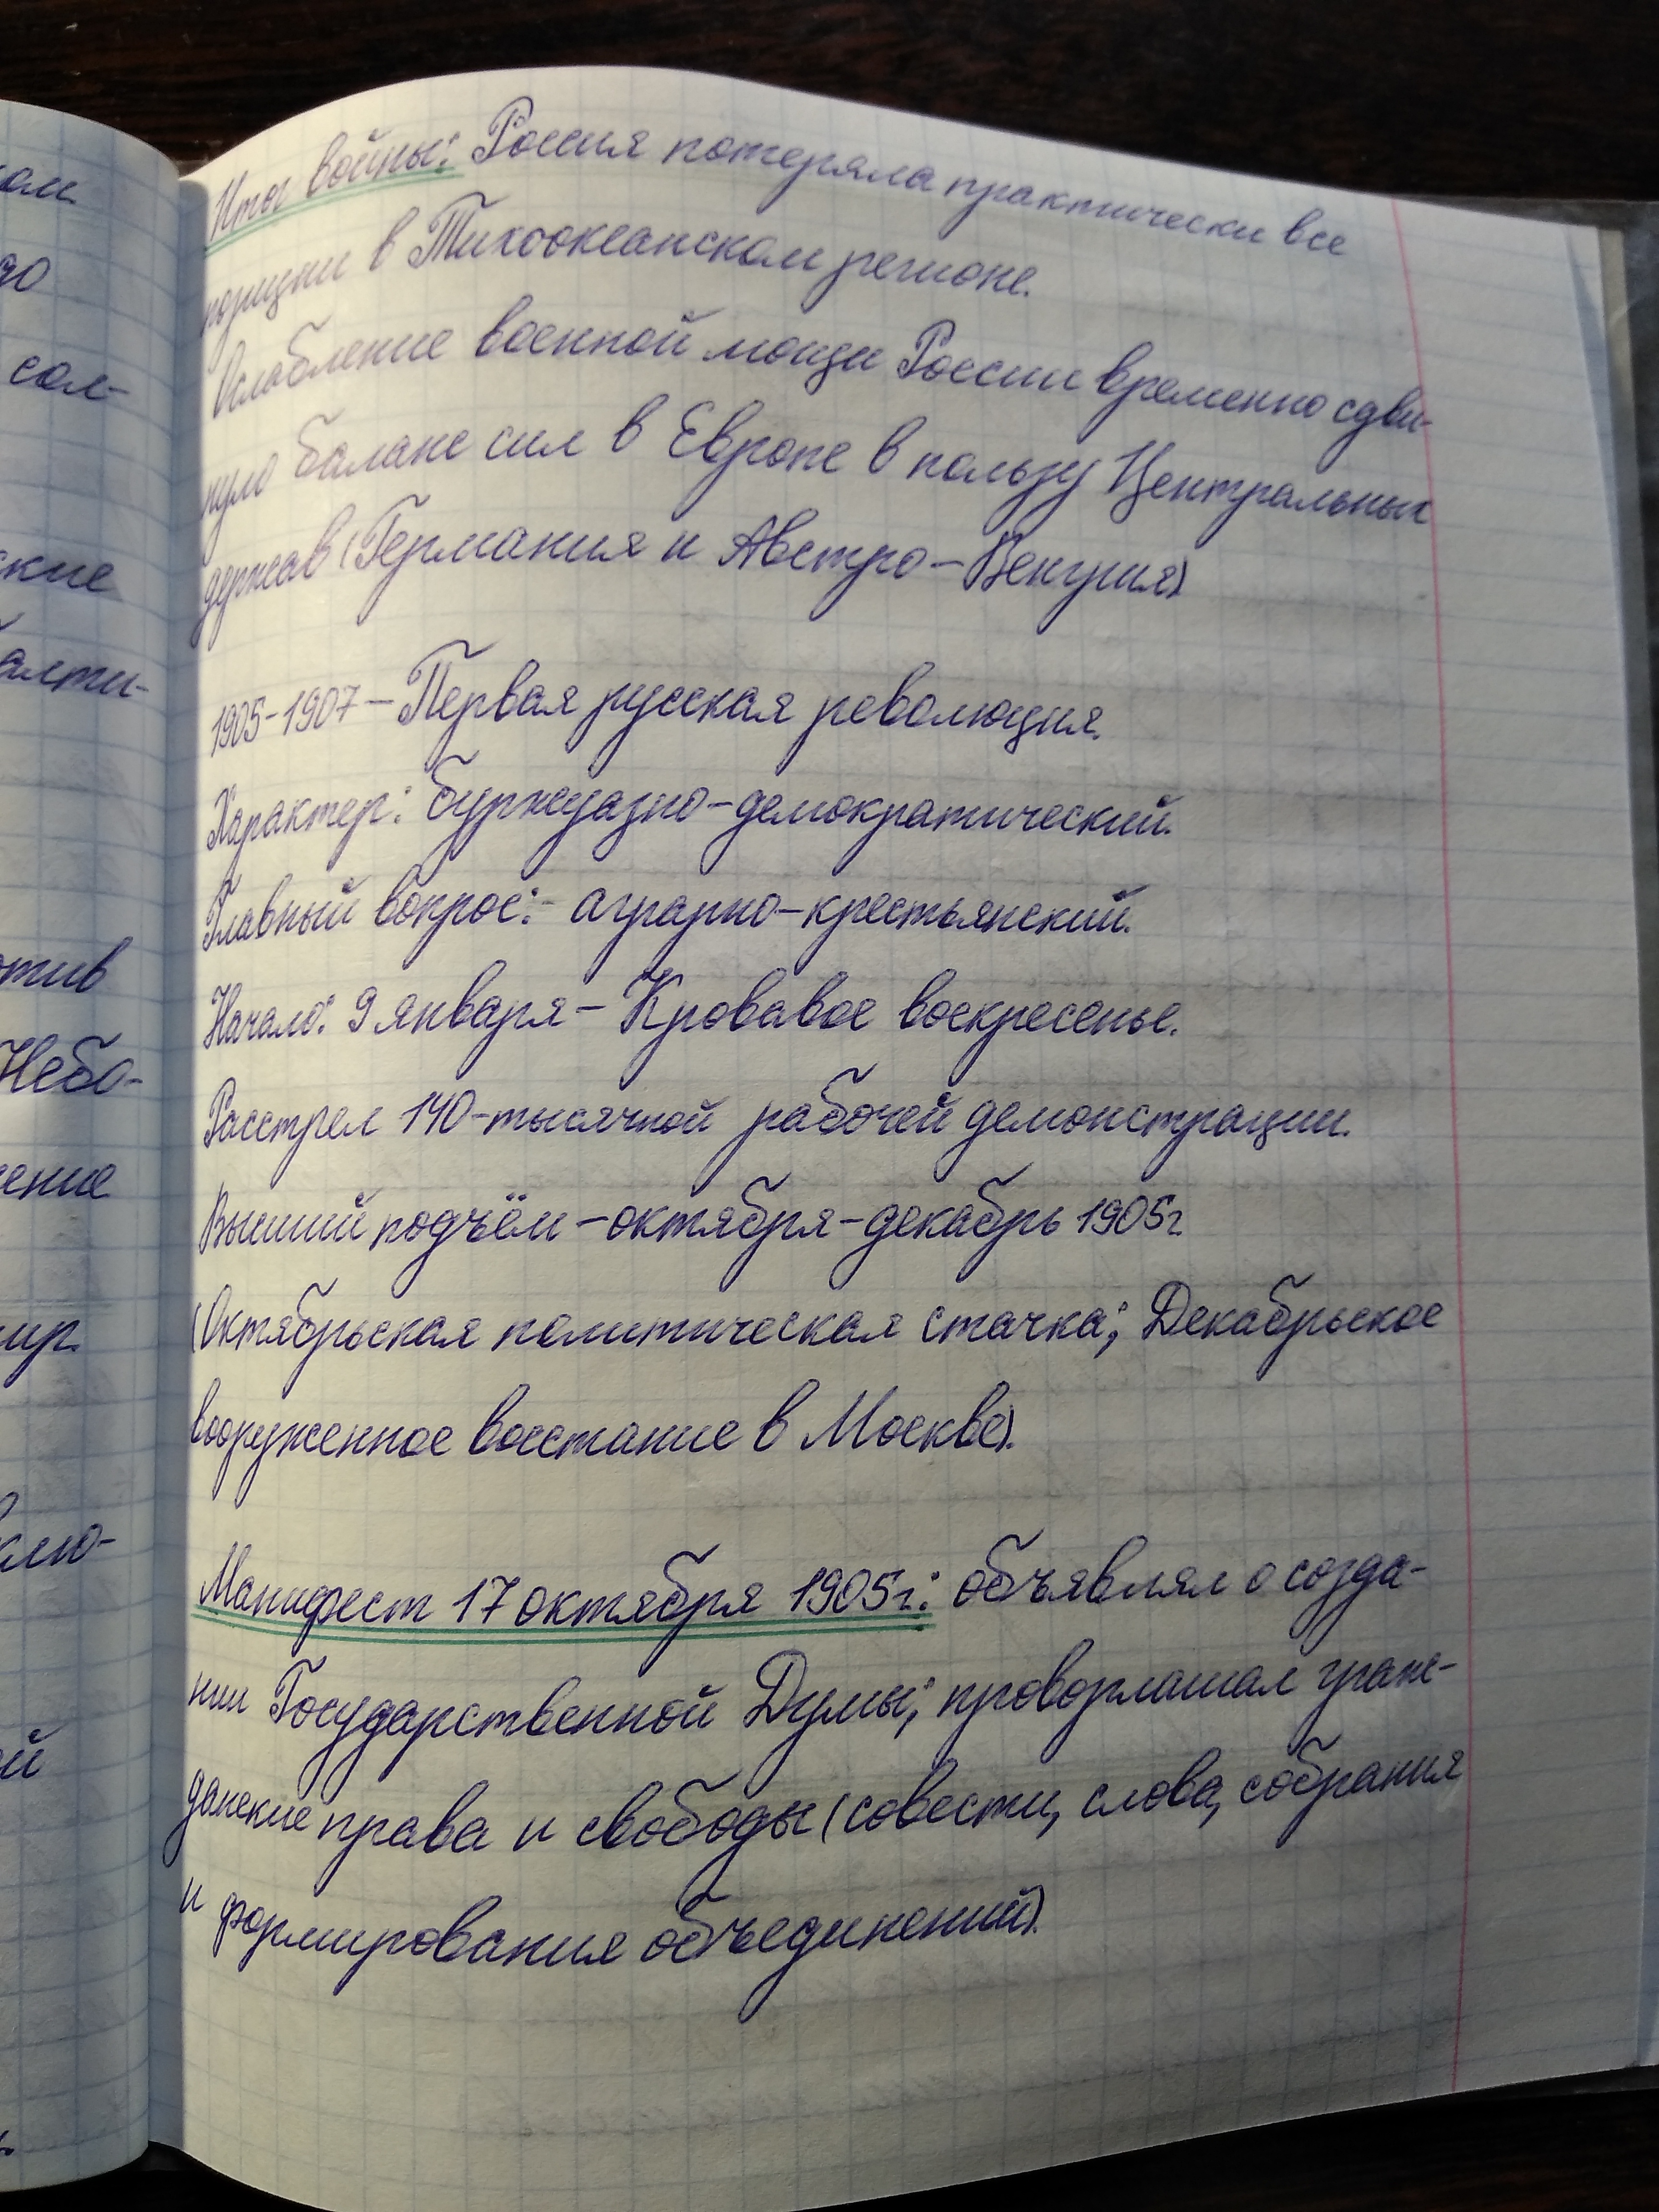 Итог войны: Россия потеряла практически все
позиции в Тихоокеанском регионе.
Ослабление военной мощи России временно сдви-
нуло баланс сил в Европе в пользу Центральных
держав (Германия и Австро-Венгрия)
1905-1907 - Первая русская революция.
Характер: буржуазно-демократический.
Главный вопрос: - аграрно-крестьянский.
Начало: 9 января - Кровавое воскресенье.
Расстрел 140-тысячной рабочей демонстрации.
Высший подъём - октября-декабрь 1905г.
(Октябрьская политическая стачка; Декабрьское
вооруженное восстание в Москве).
Манифест 17 октября 1905г.: объявлял о созда-
нии Государственной Думы; провозглашал граж-
данские права и свободы (совести, слова, собрания
и формирования объединений).
ам
до
сол-
ские
алти-
отив
Небо-
ение
ир.
алю-
ой